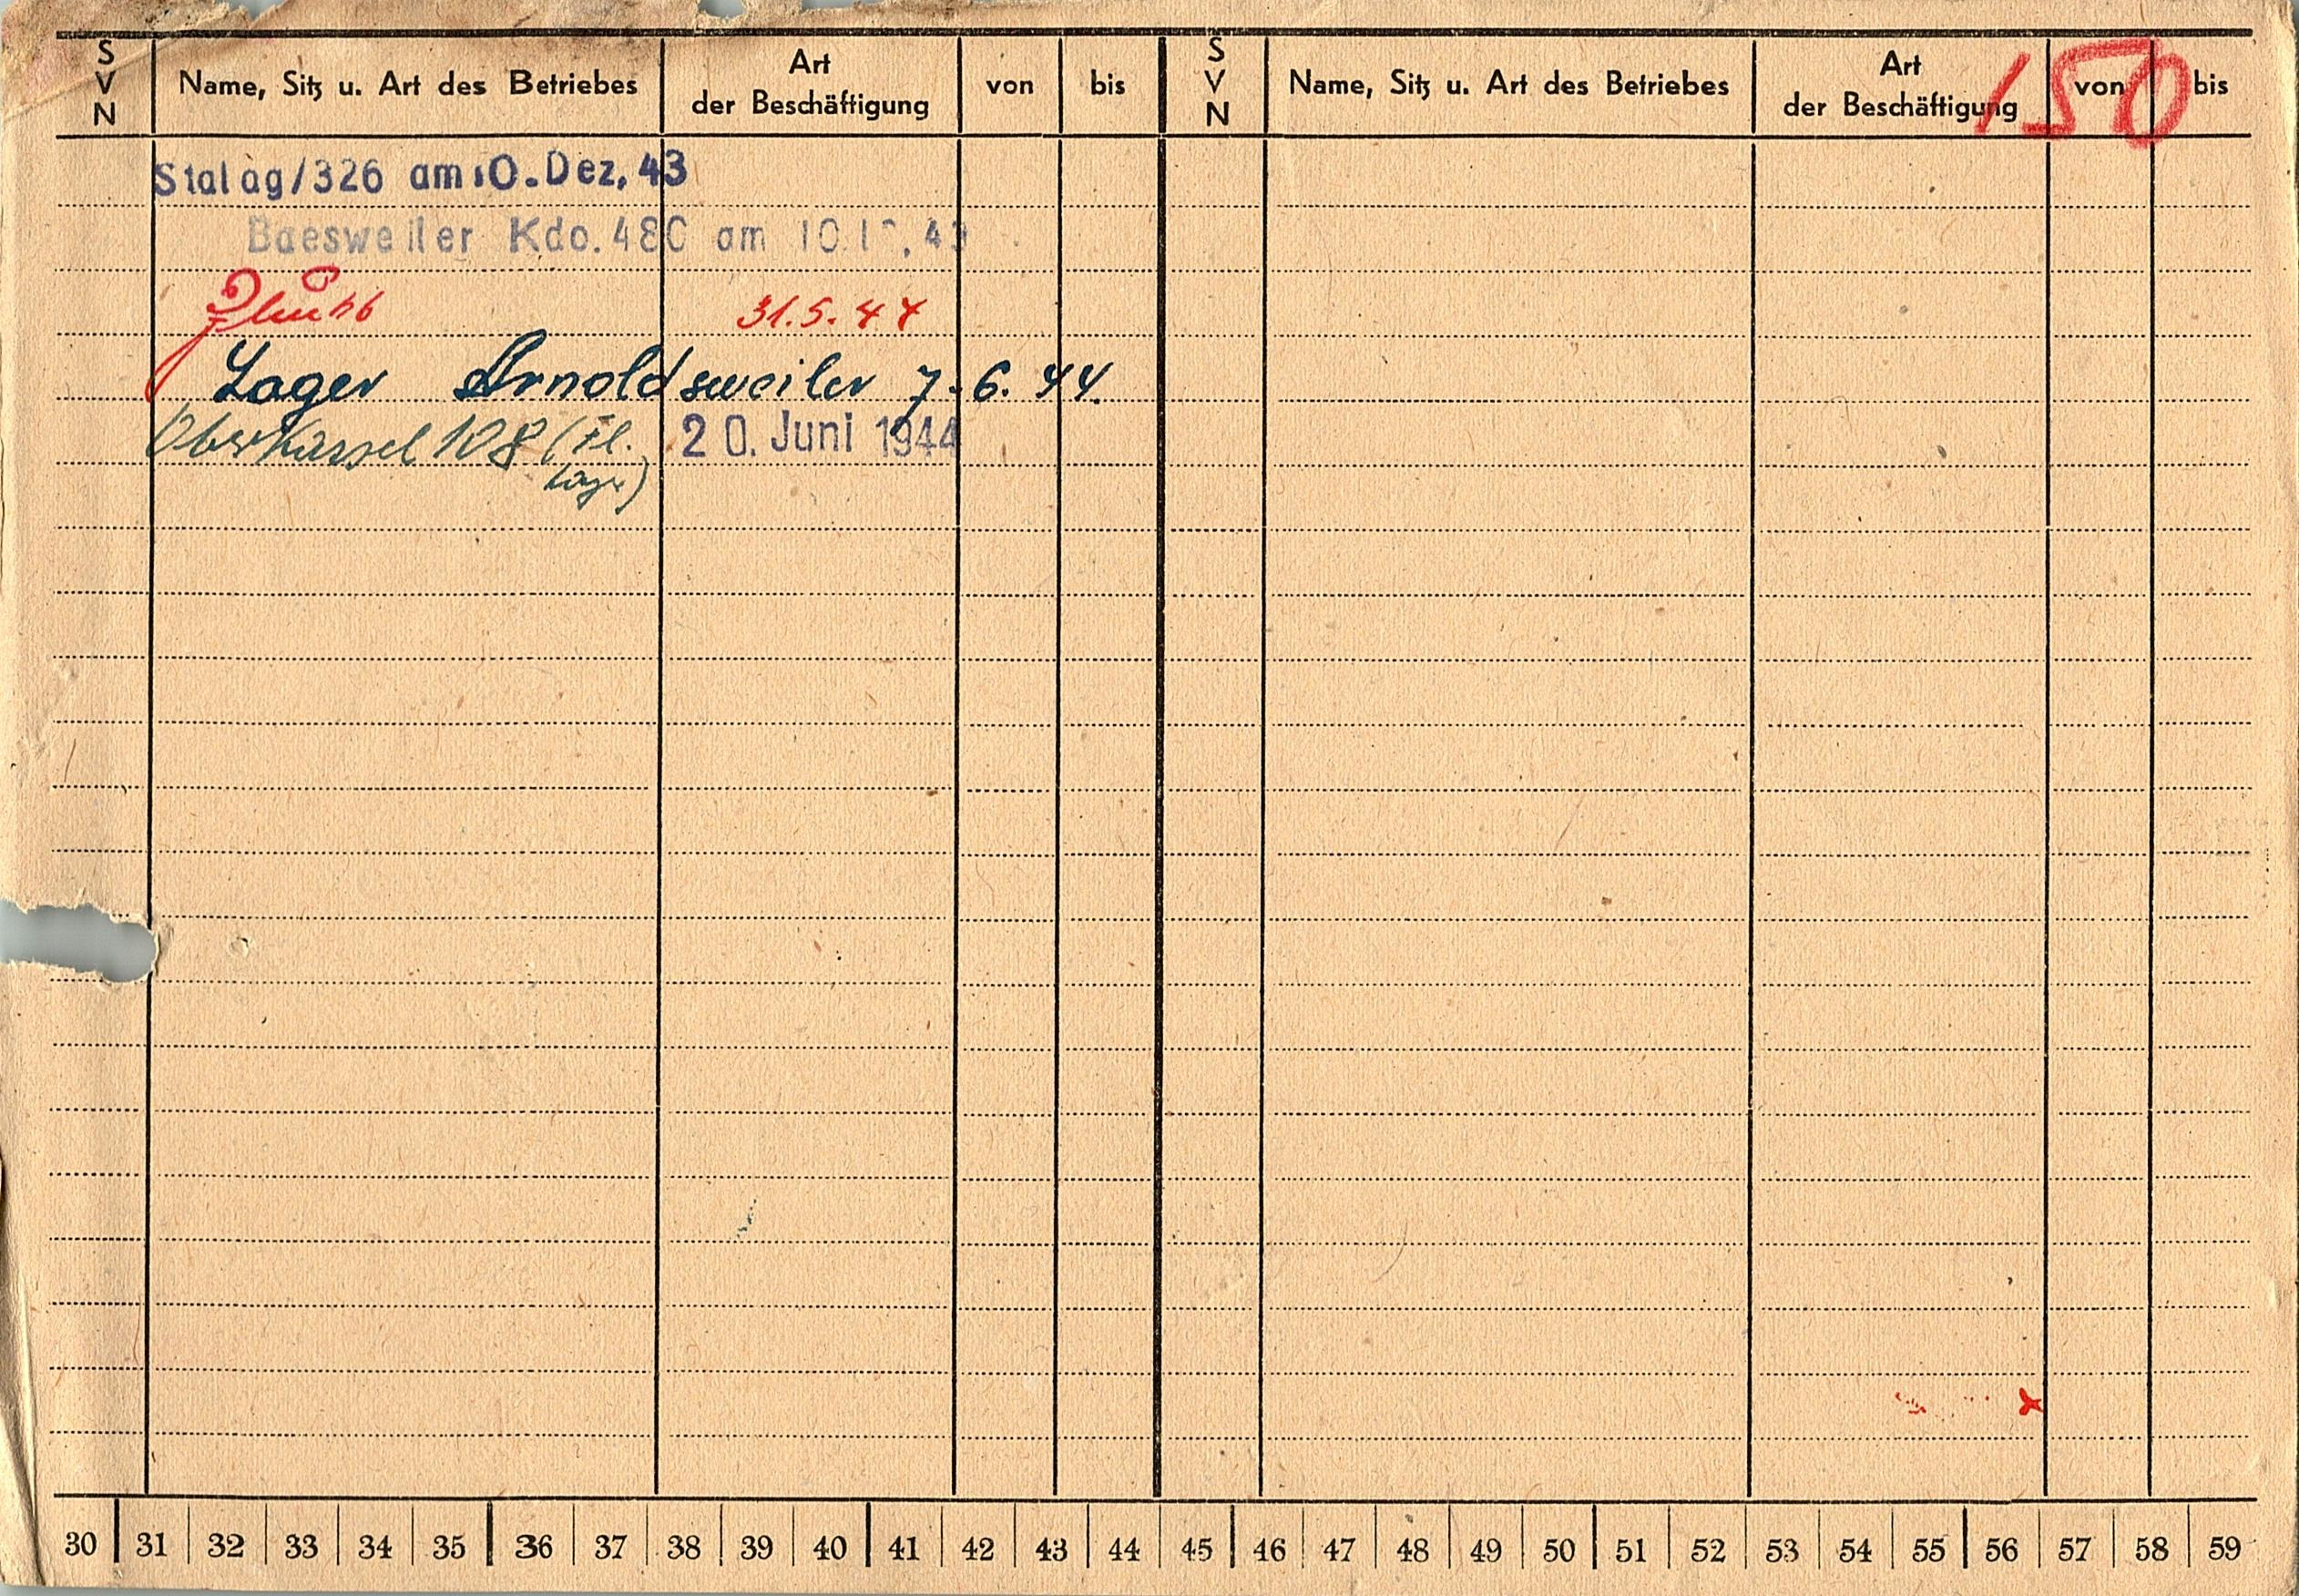 S V N Name, Sitz u. Art des Betriebes Art der Beschäftigung von bis S V N Name, Sitz u. Art des Betriebes Art der Beschäftigung von bis
150
Stalag/326 am 10. Dez. 43
Baesweiler Kdo. 480 am 10.
31.5.44
Lager Arnoldsweiler 7.6.44.
Oberkassel 108 (Fl. Lager) 20. Juni 1944
30 31 32 33 34 35 36 37 38 39 40 41 42 43 44 45 46 47 48 49 50 51 52 53 54 55 56 57 58 59